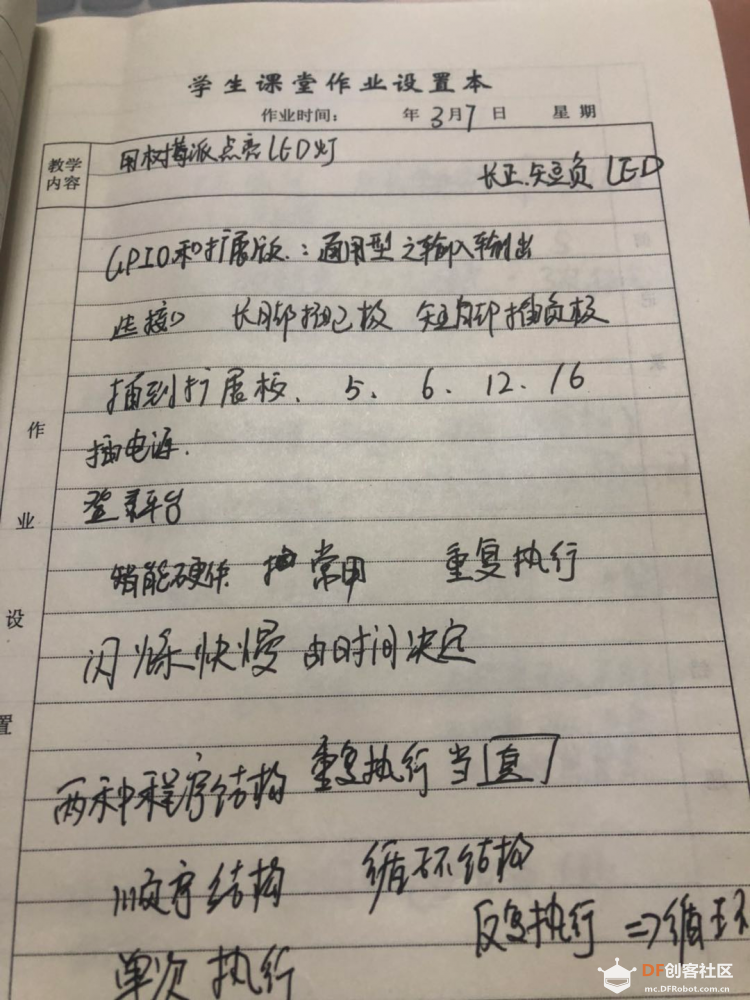 学生课堂作业设置本
作业时间： 年 3月7日 星期
教学内容 用树莓派点亮LED灯
长正.短负 LED
GPIO和扩展版.：通用型之输入输出
连接 长脚插正极 短脚插负极
插到扩展板、5、6、12、16
插电源.
登录平台
智能硬件 常用 重复执行
闪烁快慢 由时间决定
两种程序结构 重复执行当真
顺序结构 循环结构
反复执行 ⇒循环
单次执行
作业设置
DF创客社区
mc.DFRobot.com.cn